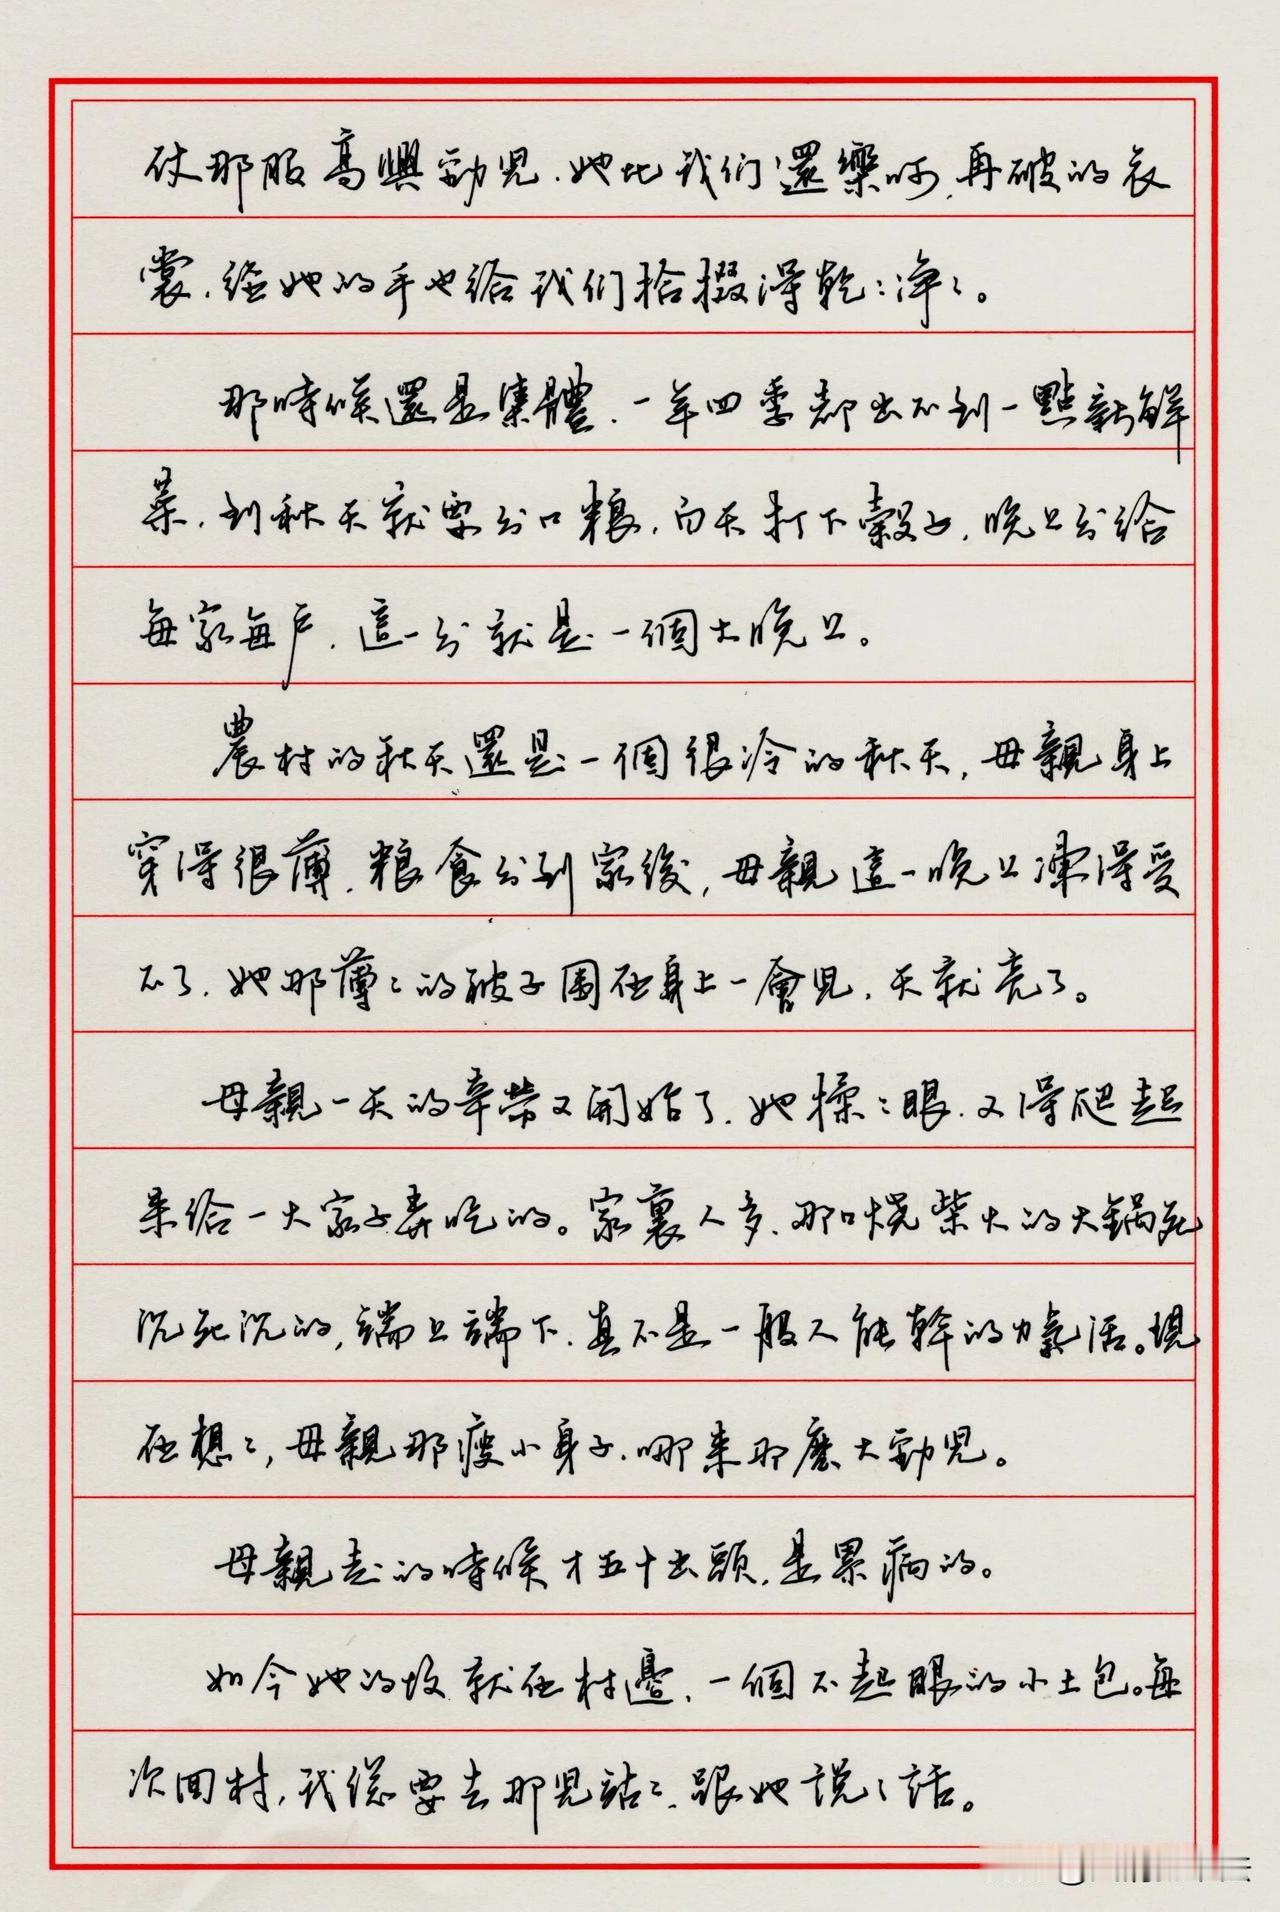 仗那股高興勁兒，她比我们還樂呵，再破的衣
裳，經她的手也給我们拾掇得乾〻淨〻。
那時候還是集體，一年四季都出不到一點新鮮
菜，到秋天就要分口糧，白天打下穀子，晚上分給
每家每户，這一分就是一個大晚上。
農村的秋天還是一個很冷的秋天，母親身上
穿得很薄，粮食分到家後，母親這一晚上凍得受
不了，她那薄〻的被子圍在身上一會兒，天就亮了。
母親一天的辛勞又開始了，她揉〻眼，又得爬起
来給一大家子弄吃的。家裏人多，那口燒柴火的大鍋死
沉死沉的，端上端下，真不是一般人能幹的力氣活。現
在想〻，母親那瘦小身子，哪来那麽大勁兒。
母親走的時候才五十出頭，是累病的。
如今她的墳就在村邊，一個不起眼的小土包。每
次回村，我總要去那兒站〻，跟她說〻話。